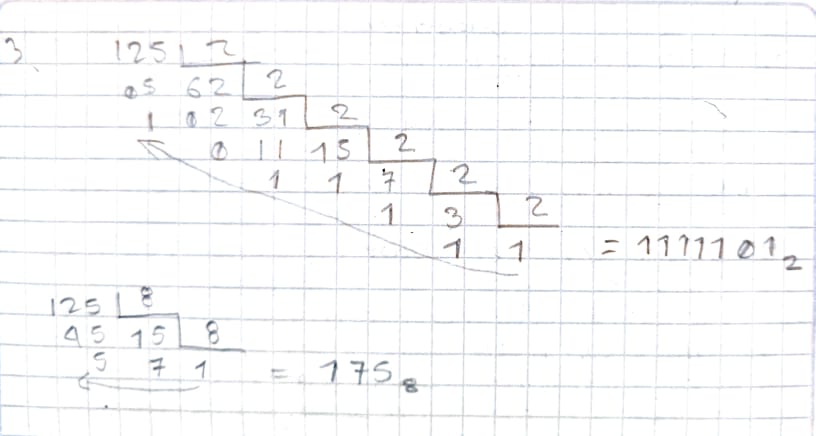 3
125 2
05 62 2
1 02 31 2
0 11 15 2
1 1 7 2
1 3 2
1 1 = 1111101₂
125 8
45 15 8
5 7 1 = 175₈